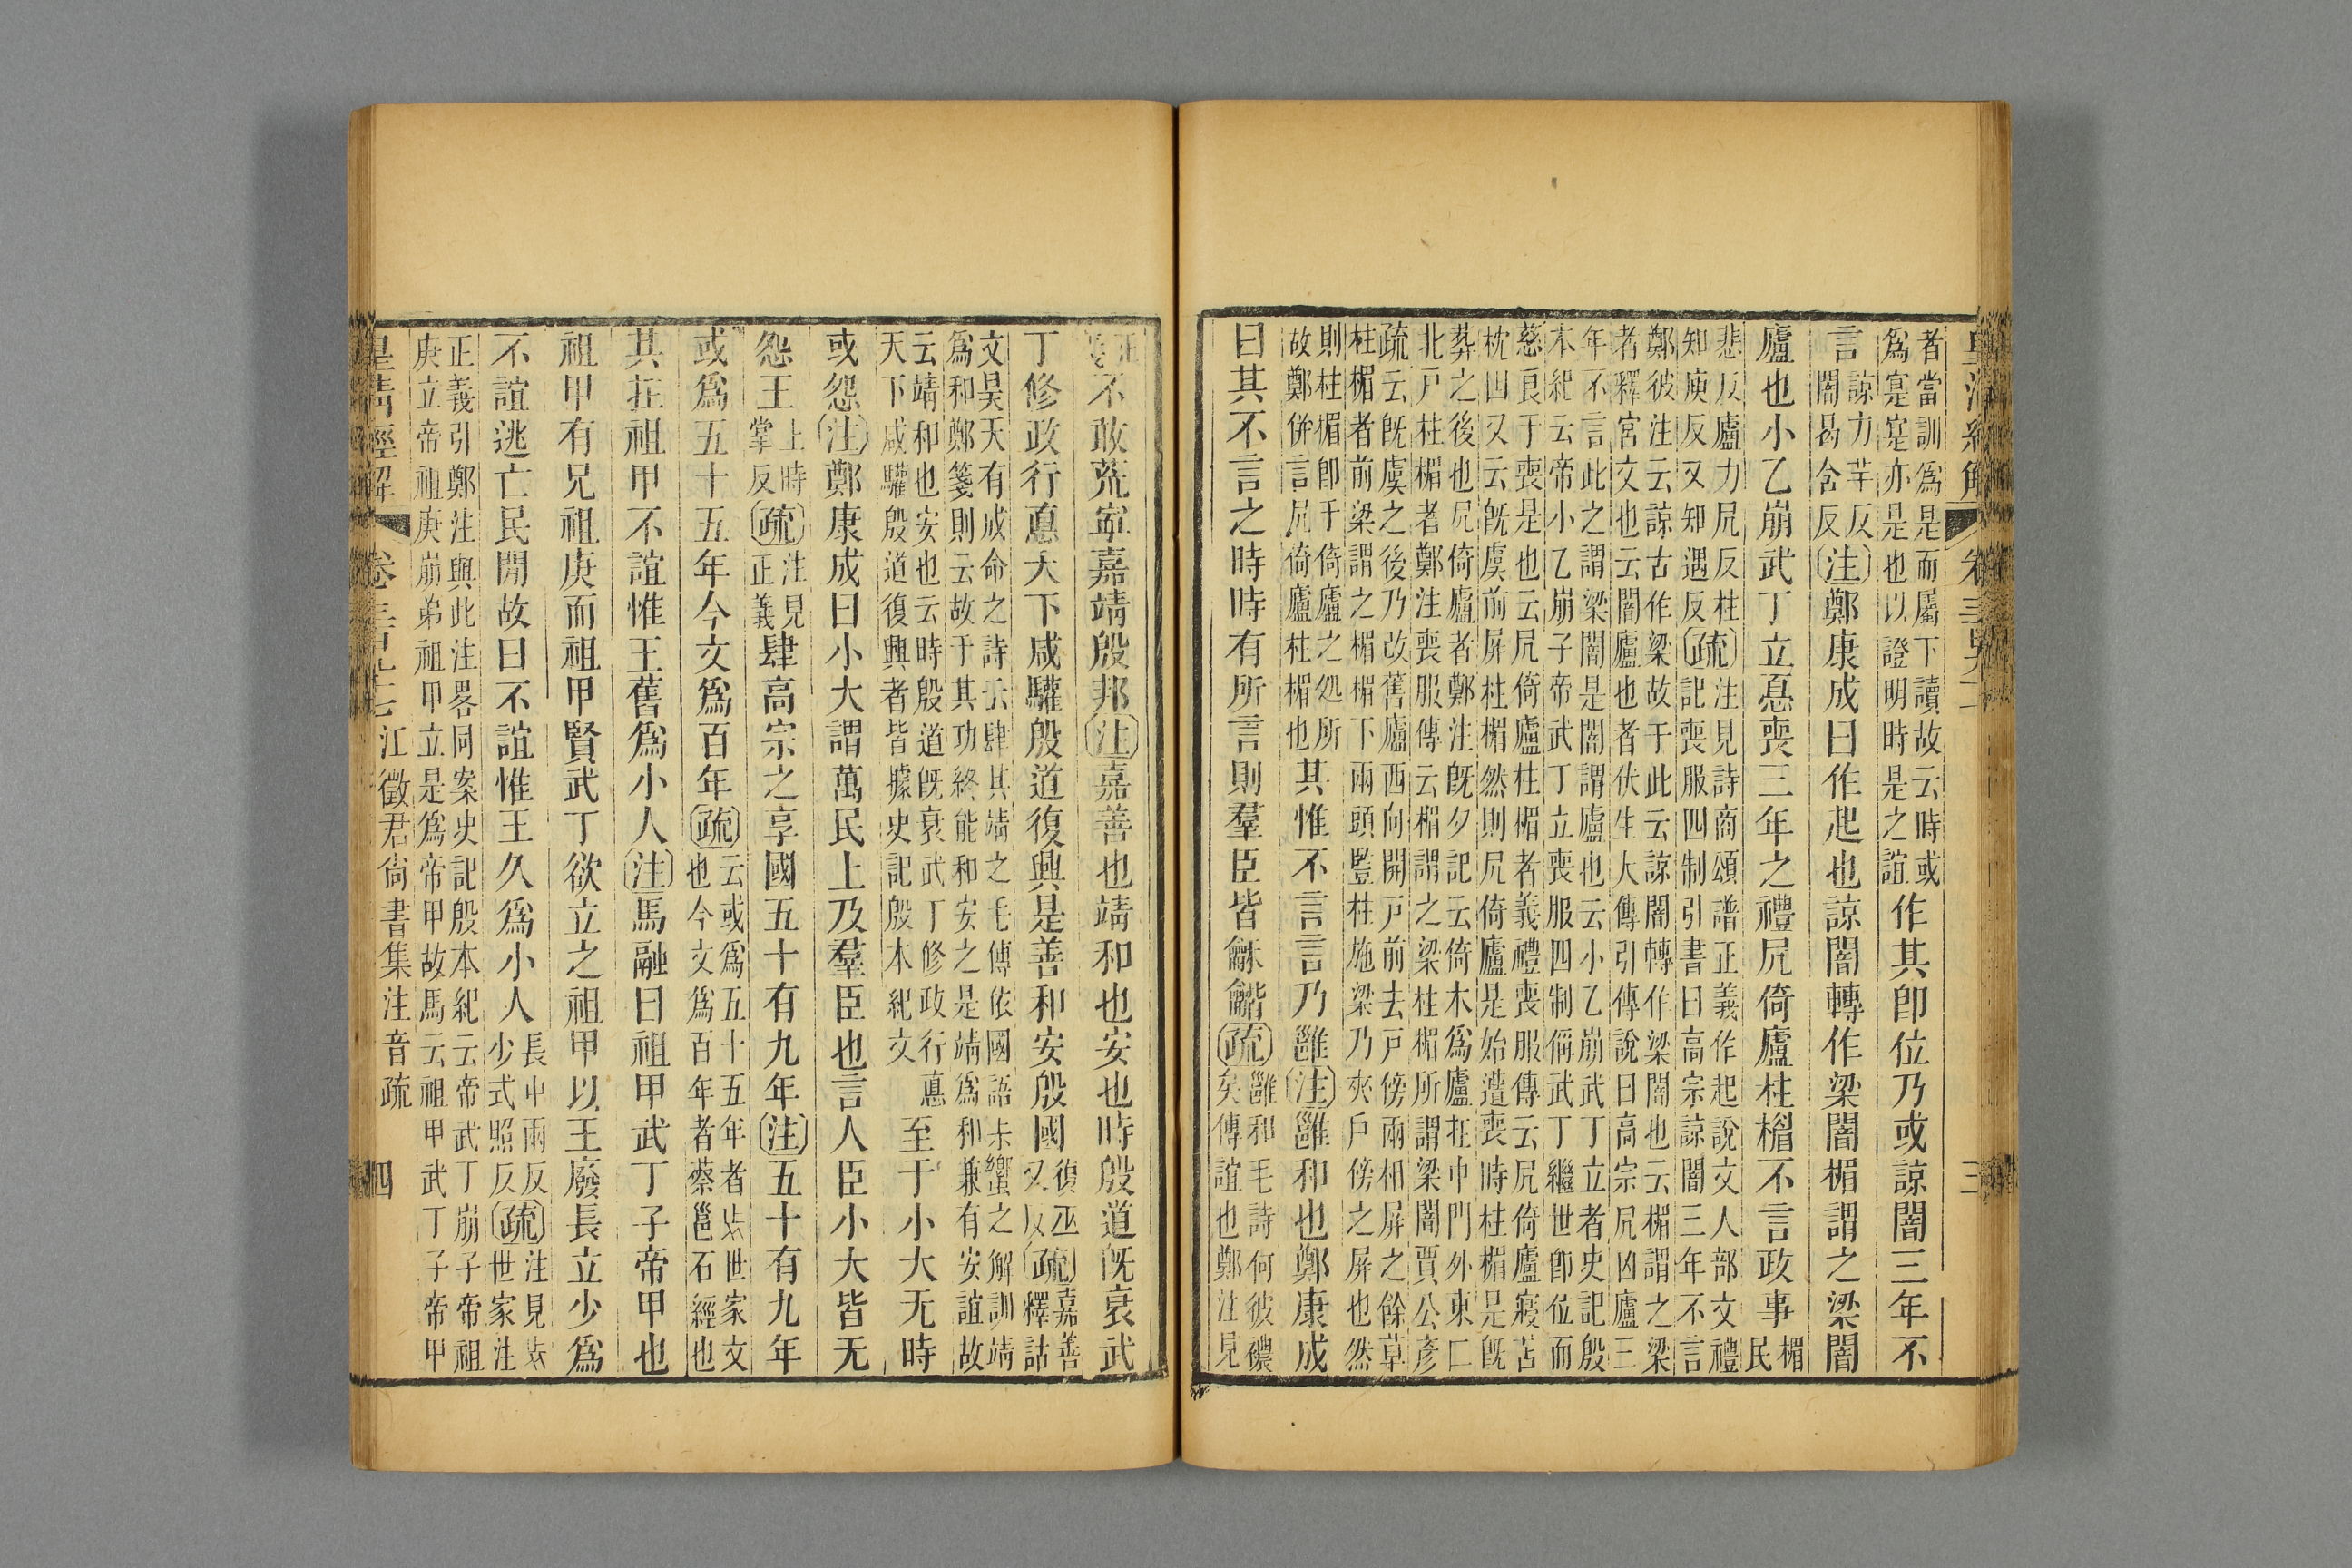 皇清經解
卷三百九十七
三
者當訓爲是而屬下讀故云時或
爲寔寔亦是也以證明時是之誼
作其卽位乃或諒闇三年不
言
諒力羊反
闇曷含反
注鄭康成曰作起也諒闇轉作梁闇楣謂之梁闇
廬也小乙崩武丁立㥑喪三年之禮凥倚廬柱楣不言政事
楣
民
悲反廬力凥反柱
知庾反又知遇反
疏
注見詩商頌譜正義作起說文人部文禮
記喪服四制引書曰高宗諒闇三年不言
鄭彼注云諒古作梁故于此云諒闇轉作梁闇也云楣謂之梁
者釋宮文也云闇廬也者伏生大傳引傳說曰高宗凥凶廬三
年不言此之謂梁闇是闇謂廬也云小乙崩武丁立者史記殷
本紀云帝小乙崩子帝武丁立喪服四制偁武丁繼世卽位而
慈良于喪是也云凥倚廬柱楣者義禮喪服傳云凥倚廬寢苫
枕凷又云旣虞前屏柱楣然則凥倚廬是始遭喪時柱楣是旣
葬之後也凥倚廬者鄭注旣夕記云倚木爲廬在中門外東匚
北戶柱楣者鄭注喪服傳云楣謂之梁柱楣所謂梁闇賈公彥
疏云旣虞之後乃改舊廬西向開戶前去戶傍兩相屏之餘草
柱楣者前梁謂之楣楣下兩頭豎柱施梁乃夾戶傍之屏也然
則柱楣卽于倚廬之処所
故鄭併言凥倚廬柱楣也
其惟不言言乃雝注雝和也鄭康成
曰其不言之時時有所言則羣臣皆龢龤疏
雝和毛詩何彼襛
矣傳誼也鄭注見
不敢荒寍嘉靖殷邦注嘉善也靖和也安也時殷道旣衰武
丁修政行悳天下咸驩殷道復興是善和安殷國
復巫
又反
疏
嘉善
釋詁
文昊天有成命之詩云肆其靖之毛傳依國語未蠁之解訓靖
爲和鄭箋則云故于其功終能和安之是靖爲和兼有安誼故
云靖和也安也云時殷道旣衰武丁修政行悳
天下咸驩殷道復興者皆據史記殷本紀文
至于小大无時
或怨注鄭康成曰小大謂萬民上及羣臣也言人臣小大皆无
怨王
上時
掌反
疏
注見
正義
肆高宗之享國五十有九年注五十有九年
或爲五十五年今文爲百年疏
云或爲五十五年者㳒世家文
也今文爲百年者蔡邕石經也
其在祖甲不誼惟王舊爲小人注馬融曰祖甲武丁子帝甲也
祖甲有兄祖庚而祖甲賢武丁欲立之祖甲以王廢長立少爲
不誼逃亡民閒故曰不誼惟王久爲小人
長中雨反
少式照反
疏
注見㳒
世家注
正義引鄭注與此注畧同案史記殷本紀云帝武丁崩子帝祖
庚立帝祖庚崩弟祖甲立是爲帝甲故馬云祖甲武丁子帝甲
皇清經解
卷三百九十七
江徵君尙書集注音疏
四